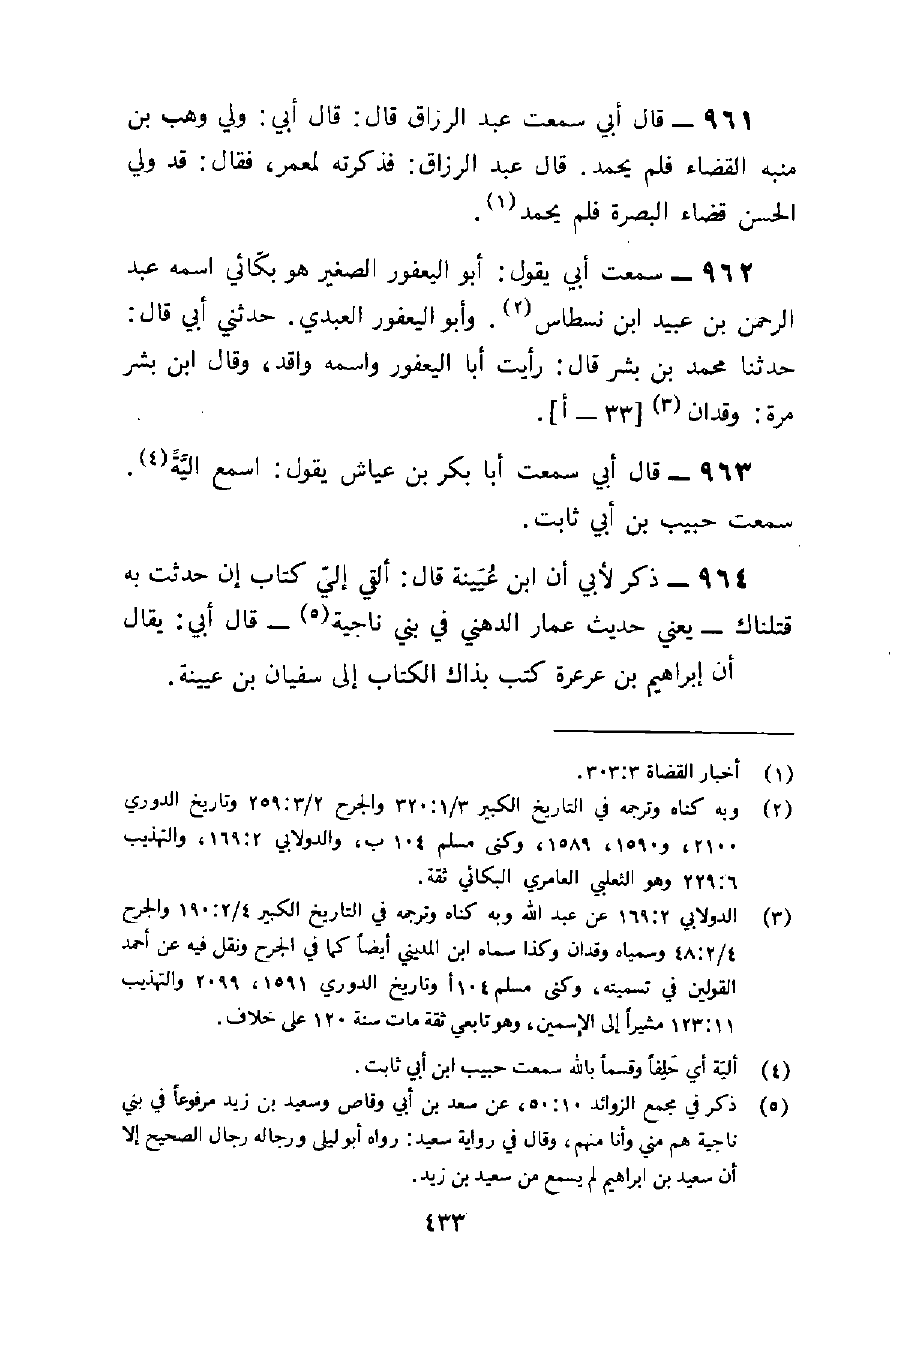 ٩٦١ ــ قال أبي سمعت عبد الرزاق قال: قال أبي: ولي وهب بن
منبه القضاء فلم يحمد. قال عبد الرزاق: فذكرته لمعمر، فقال: قد ولي
الحسن قضاء البصرة فلم يحمد(١).
٩٦٢ ــ سمعت أبي يقول: أبو اليعفور الصغير هو بكّائي اسمه عبد
الرحمن بن عبيد ابن نسطاس(٢). وأبو اليعفور العبدي. حدثني أبي قال:
حدثنا محمد بن بشر قال: رأيت أبا اليعفور واسمه واقد، وقال ابن بشر
مرة: وقدان(٣) [٣٣ ــ أ].
٩٦٣ ــ قال أبي سمعت أبا بكر بن عياش يقول: اسمع اليَّةً(٤).
سمعت حبيب بن أبي ثابت.
٩٦٤ ــ ذكر لأبي أن ابن عُيَينة قال: ألقي إليّ كتاب إن حدثت به
قتلناك ــ يعني حديث عمار الدهني في بني ناجية(٥) ــ قال أبي: يقال
أن إبراهيم بن عرعرة كتب بذاك الكتاب إلى سفيان بن عيينة.
(١) أخبار القضاة ٣:٣٠٣.
(٢) وبه كناه وترجمه في التاريخ الكبير ٣/١:٣٢٠ والجرح ٢/٣:٢٥٩ وتاريخ الدوري
٢١٠٠، و١٥٩٠، ١٥٨٩، وكنى مسلم ١٠٤ ب، والدولابي ٢:١٦٩، والتهذيب
٦:٢٢٩ وهو الثعلبي العامري البكائي ثقة.
(٣) الدولابي ٢:١٦٩ عن عبد الله وبه كناه وترجمه في التاريخ الكبير ٤/٢:١٩٠ والجرح
٤/٢:٤٨ وسماه وقدان وكذا سماه ابن المديني أيضاً كما في الجرح ونقل فيه عن أحمد
القولين في تسميته، وكنى مسلم ١٠٤أ وتاريخ الدوري ١٥٩١، ٢٠٩٩ والتهذيب
١١:١٢٣ مشيراً إلى الإسمين، وهو تابعي ثقة مات سنة ١٢٠ على خلاف.
(٤) ألية أي حَلِفاً وقسماً بالله سمعت حبيب ابن أبي ثابت.
(٥) ذكر في مجمع الزوائد ١٠:٥٠، عن سعد بن أبي وقاص وسعيد بن زيد مرفوعاً في بني
ناجية هم مني وأنا منهم، وقال في رواية سعيد: رواه أبو ليلى ورجاله رجال الصحيح إلا
أن سعيد بن ابراهيم لم يسمع من سعيد بن زيد.
٤٣٣